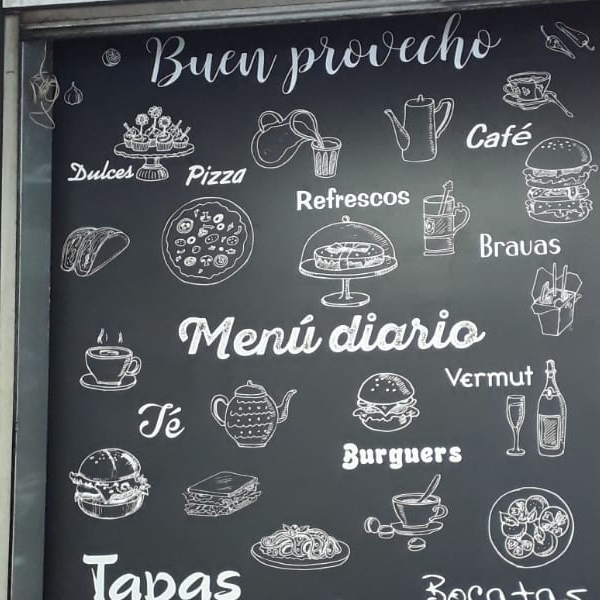 Buen provecho
Café
Dulces
Pizza
Refrescos
Bravas
Menú diario
Vermut
Té
Burguers
Tapas
Bocatas